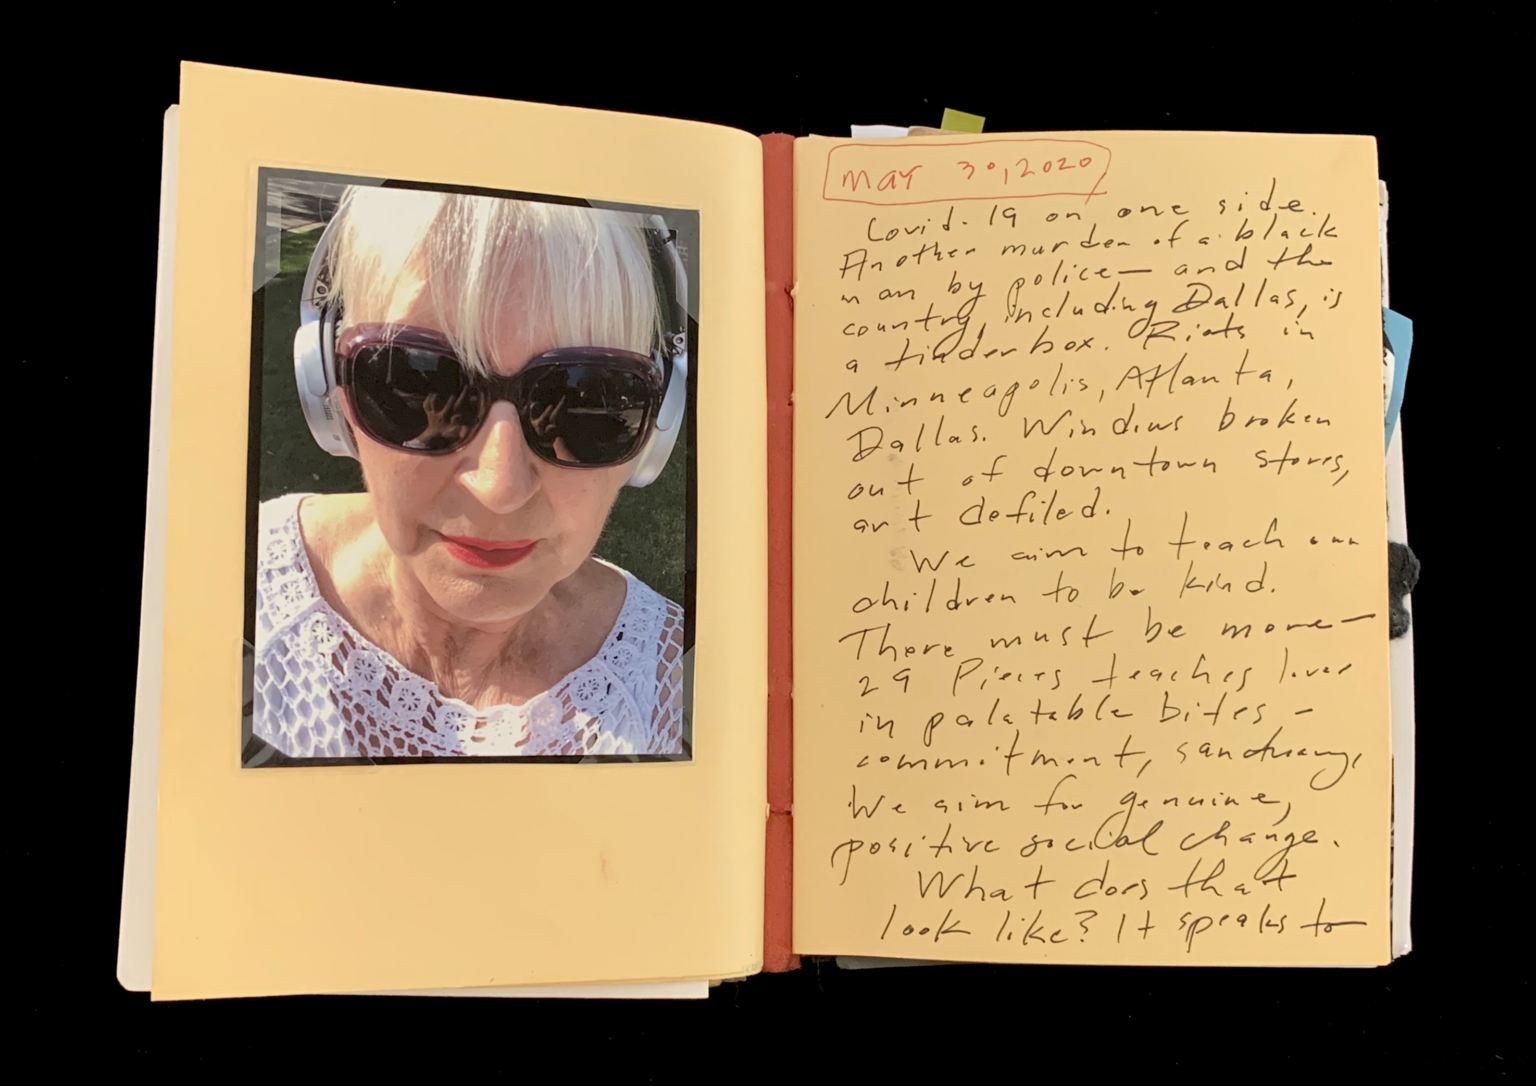 MAY 30, 2020
Covid-19 on one side.
Another murder of a black
man by police — and the
country, including Dallas, is
a tinderbox. Riots in
Minneapolis, Atlanta,
Dallas. Windows broken
out of downtown stores,
art defiled.
We aim to teach our
children to be kind.
There must be more —
29 Pieces teaches love
in palatable bites -
commitment, sanctuary,
We aim for genuine,
positive social change.
What does that
look like? It speaks to